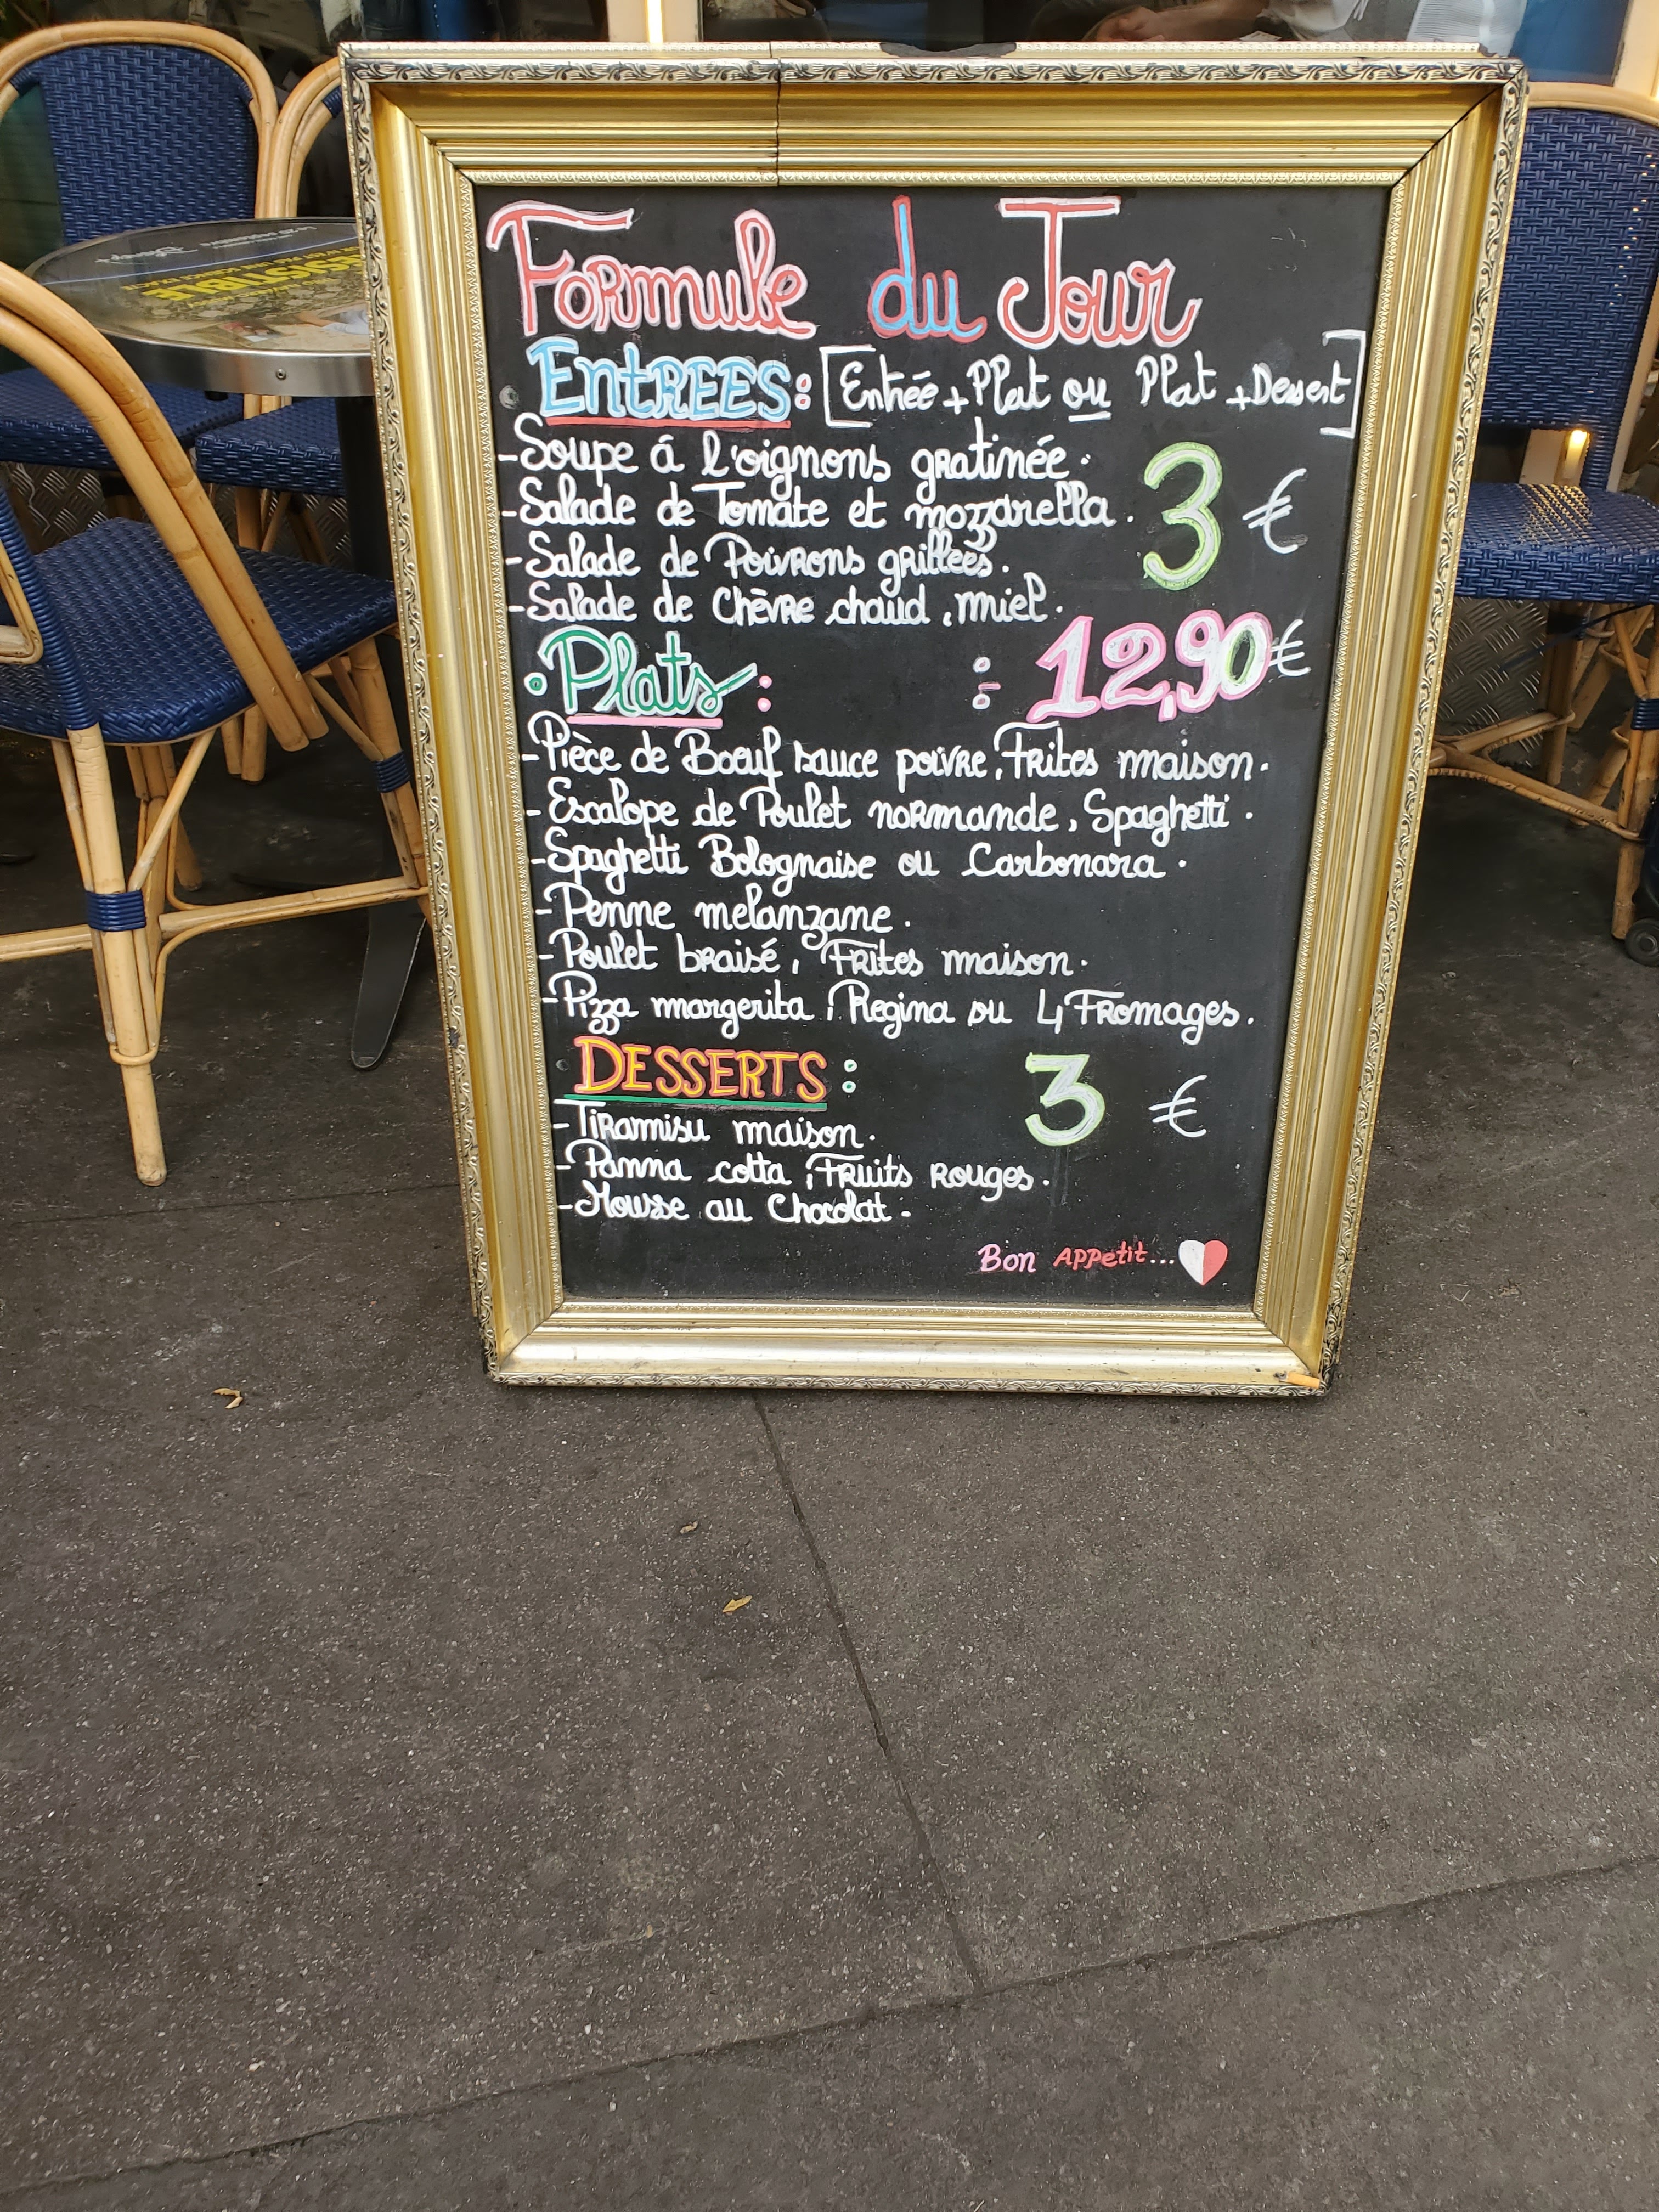 Formule du Jour
ENTREES: [Entrée + Plat ou Plat + Dessert]
- Soupe á l'oignons gratinée.
- Salade de Tomate et mozzarella. 3 €
- Salade de Poivrons grillees.
- Salade de Chèvre chaud, miel.
• Plats : : 12,90€
- Pièce de Boeuf sauce poivre, Frites maison.
- Escalope de Poulet normande, Spaghetti.
- Spaghetti Bolognaise ou Carbonara.
- Penne melanzane.
- Poulet braisé, Frites maison.
- Pizza margerita, Regina ou 4 Fromages.
DESSERTS : 3 €
- Tiramisu maison.
- Panna cotta, Fruits Rouges.
- Mousse au Chocolat.
Bon Appetit...